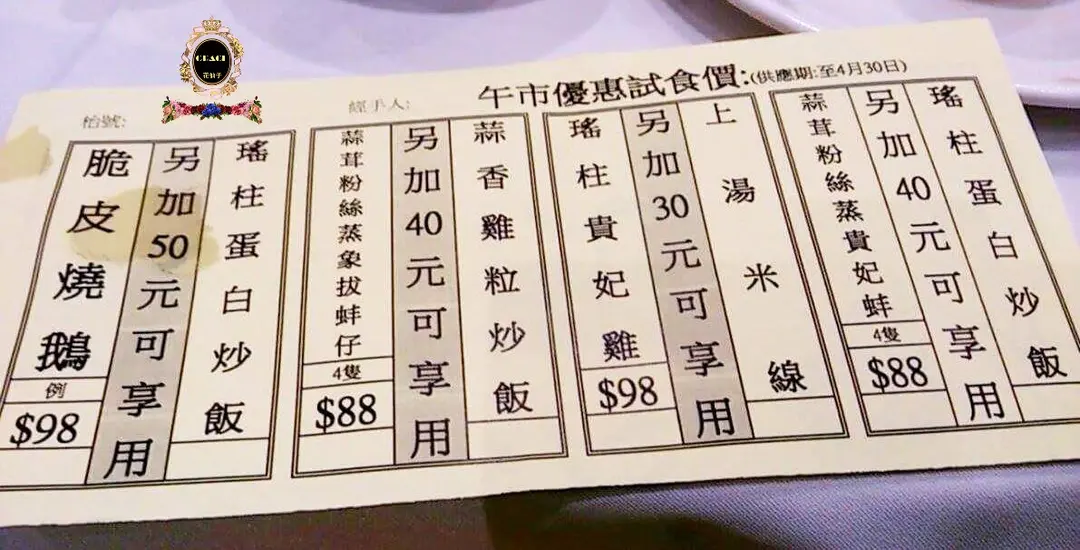 GRACI
花仙子
枱號:
經手人:
午市優惠試食價:(供應期:至4月30日)
瑤柱蛋白炒飯
另加40元可享用
蒜茸粉絲蒸貴妃蚌
4隻
$88
上湯米線
另加30元可享用
瑤柱貴妃雞
$98
蒜香雞粒炒飯
另加40元可享用
蒜茸粉絲蒸象拔蚌仔
4隻
$88
瑤柱蛋白炒飯
另加50元可享用
脆皮燒鵝
例
$98